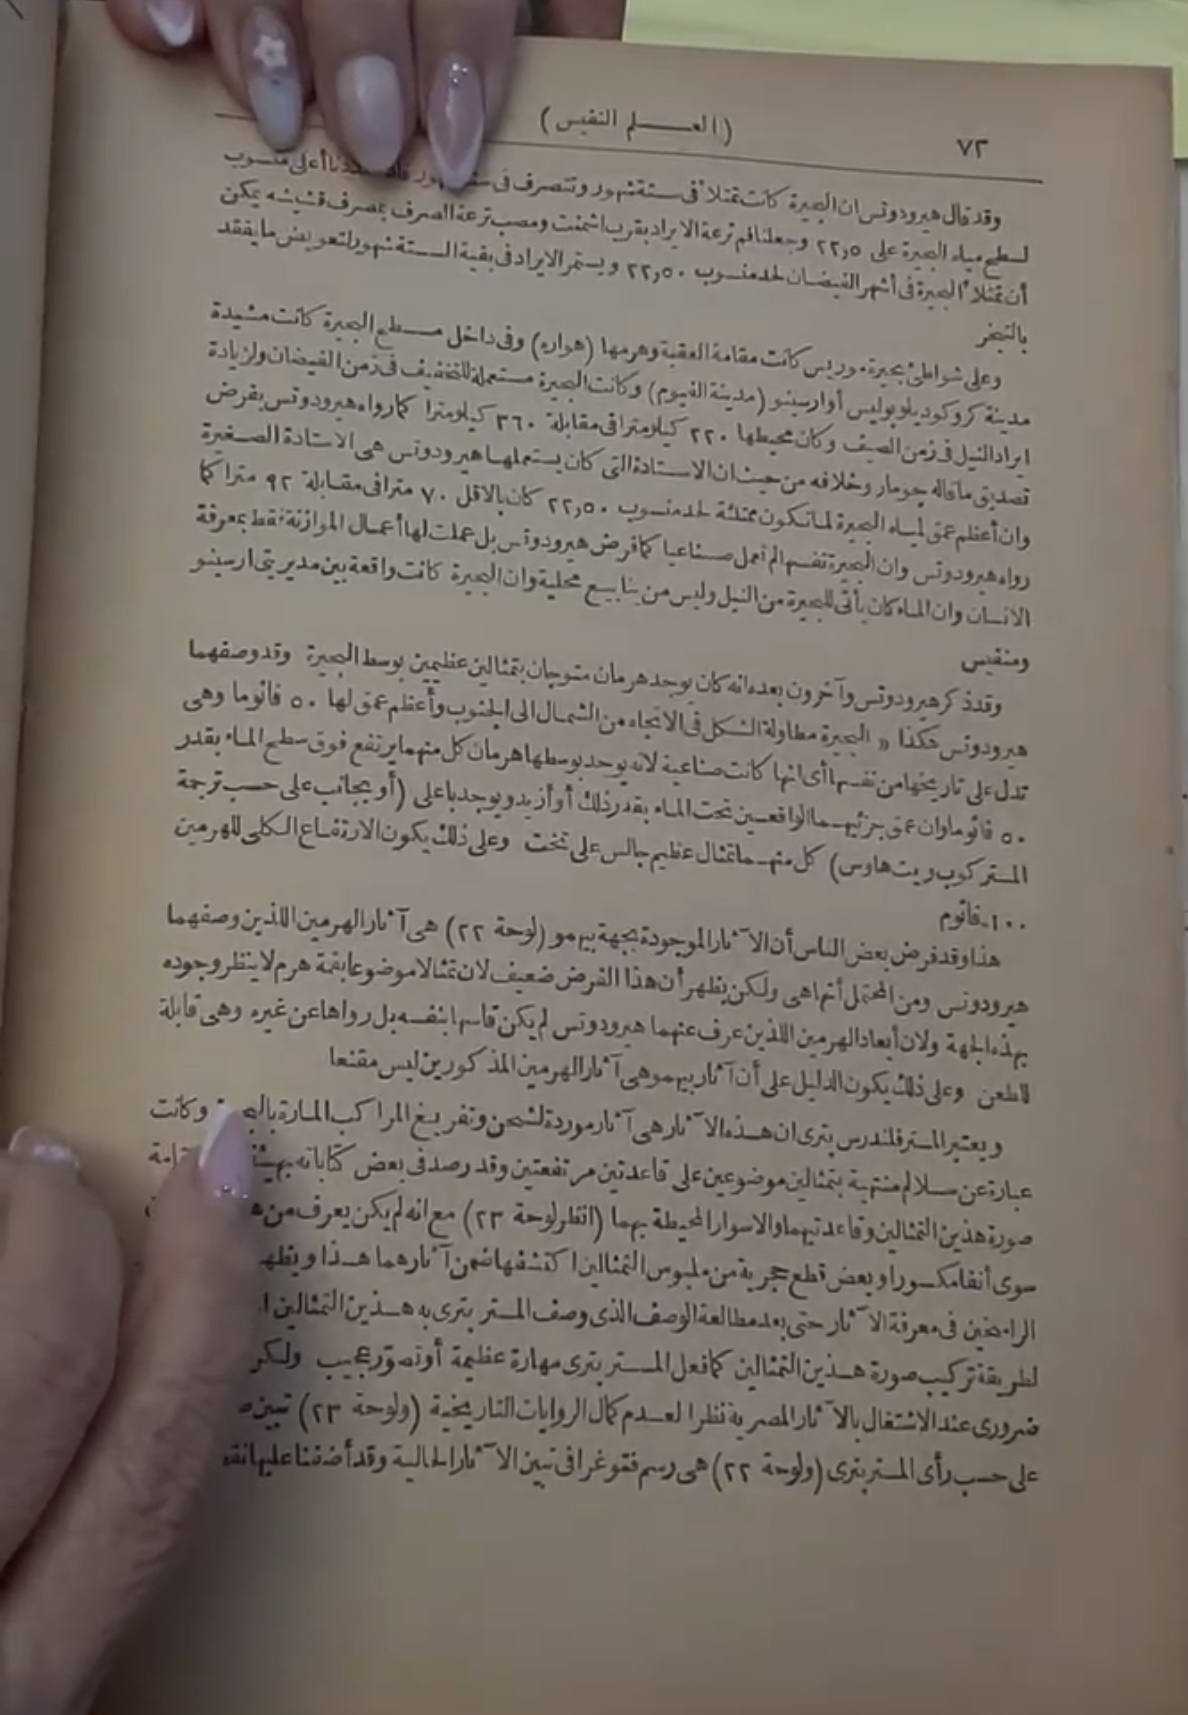 ٧٢
(العلم النفيس)
وقد قال هيرودوتس ان البحيرة كانت تمتلأ في ستة شهور وتنصرف في أعلى منسوب
لسطح مياه البحيرة على ٢٢,٥ وجعلنا فم ترعة الايراد بقرب اشمنت ومصب ترعة الصرف بمصرف قشيشه يمكن
أن تمتلأ البحيرة في أشهر الفيضان لحد منسوب ٢٢,٥٠ ويستمر الايراد في بقية الستة شهور لتعويض ما يفقد
بالتبخر
وعلى شواطئ بحيرة موريس كانت مقامة العقبة وهرمها (هواره) وفى داخل مسطح البحيرة كانت مشيدة
مدينة كروكوديلوبوليس أو ارسينو (مدينة الفيوم) وكانت البحيرة مستعملة للتخفيف في زمن الفيضان ولزيادة
ايراد النيل في زمن الصيف وكان محيطها ٢٢٠ كيلومترا في مقابلة ٣٦٠ كيلومترا كما رواه هيرودوتس بفرض
تصديق ما قاله جومار وخلافه من حيث ان الاستادة التى كان يستعملها هيرودوتس هى الاستادة الصغيرة
وان أعظم عمق لمياه البحيرة لما تكون ممتلئة لحد منسوب ٢٢,٥٠ كان بالاقل ٧٠ مترا في مقابلة ٩٢ مترا كما
رواه هيرودوتس وان البحيرة نفسها لم تعمل صناعيا كما فرض هيرودوتس بل عملت لها أعمال الموازنة فقط بمعرفة
الانسان وان الماء كان يأتى للبحيرة من النيل وليس من ينابيع محلية وان البحيرة كانت واقعة بين مديريتى ارسينو
ومنفيس
وقد ذكر هيرودوتس وآخرون بعده انه كان يوجد هرمان متوجان بتمثالين عظيمين بوسط البحيرة وقد وصفهما
هيرودوتس هكذا « البحيرة مطاولة الشكل في الاتجاه من الشمال الى الجنوب وأعظم عمق لها ٥٠ فاثوما وهى
تدل على تاريخها من نفسها أى انها كانت صناعية لانه يوجد بوسطها هرمان كل منهما يرتفع فوق سطح الماء بقدر
٥٠ فاثوما وان عمق جزئيهما الواقعين تحت الماء بقدر ذلك أو أزيد ويوجد باعلى (أو بجانب على حسب ترجمة
المستر كوب ويت هاوس) كل منهما تمثال عظيم جالس على تخت وعلى ذلك يكون الارتفاع الكلى للهرمين
١٠٠ فاثوم
هذا وقد فرض بعض الناس أن الآثار الموجودة بجهة بيهمو (لوحة ٢٢) هى آثار الهرمين اللذين وصفهما
هيرودوتس ومن المحتمل أنها هى ولكن يظهر أن هذا الفرض ضعيف لان تمثالا موضوعا بقمة هرم لا ينظر وجوده
بهذه الجهة ولان أبعاد الهرمين اللذين عرف عنهما هيرودوتس لم يكن قاسها بنفسه بل رواها عن غيره وهى قابلة
للطعن وعلى ذلك يكون الدليل على أن آثار بيهمو هى آثار الهرمين المذكورين ليس مقنعا
ويعتبر المستر فلندرس بترى ان هذه الآثار هى آثار موردة لشحن وتفريغ المراكب المارة وكانت
عبارة عن سلالم منتهية بتمثالين موضوعين على قاعدتين مرتفعتين وقد رصد فى بعض كتاباته
صورة هذين التمثالين وقاعدتيهما والاسوار المحيطة بهما (انظر لوحة ٢٣) مع انه لم يكن يعرف من
سوى أنفا مكسورا وبعض قطع حجرية من ملبوس التمثالين اكتشفها ضمن آثارهما هذا ويظهر
الراسخين فى معرفة الآثار حتى بعد مطالعة الوصف الذى وصف المستر بترى به هذين التمثالين
لطريقة تركيب صورة هذين التمثالين كما فعل المستر بترى مهارة عظيمة أو تصوّر عجيب ولكن
ضرورى عند الاشتغال بالآثار المصرية نظرا لعدم كمال الروايات التاريخية (ولوحة ٢٣) تبين
على حسب رأى المستر بترى (ولوحة ٢٢) هى رسم فتوغرافى تبين الآثار الحالية وقد أضفنا عليها